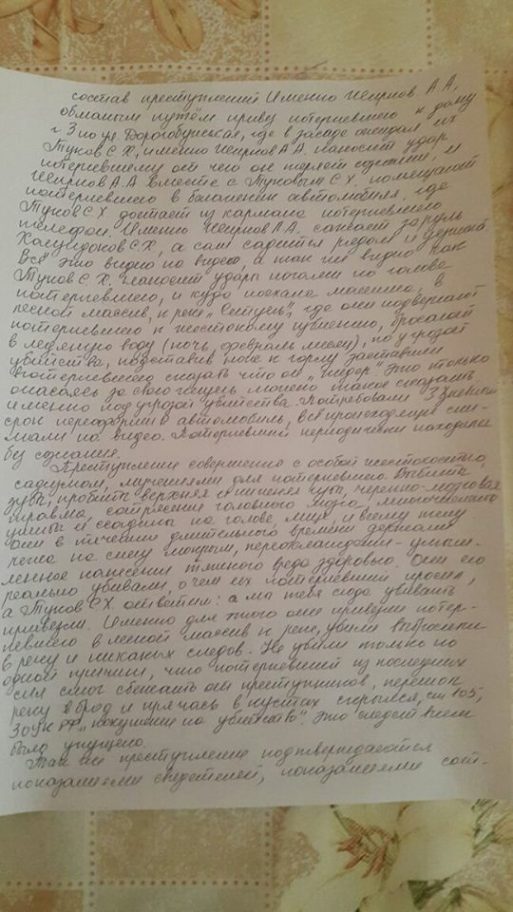 состав преступлений Именно А.А.
обманным путём привёз потерпевшего к дому
г. 3 по ул Дорогобужская, где в засаде ожидал их
Туков С Х, именно А.А. наносит удар
потерпевшему от чего он теряет сознание, и
А.А вместе с Туковым С Х. помещают
потерпевшего в багажник автомобиля, где
Туков С Х достаёт из кармана потерпевшего
телефон. Именно А.А. сажает за руль
С Х, а сам садится рядом и
Всё это видно на видео, а так же видно как
Туков С Х. наносит удары ногами по голове
потерпевшего, и куда поехала машина. В
лесной массив, к реке, где они подвергают
потерпевшего к жестокому избиению, бросают
в ледяную воду (ночь, февраль месяц), под угрозой
убийства, подставив нож к горлу заставили
потерпевшего сказать что он "пидор". Это только
опасаясь за свою жизнь можно такое сказать
именно под угрозой убийства. Потребовали в 3 дневный
срок переоформить автомобиль, всё происходящее сни-
мали на видео. Потерпевший периодически находился
без сознания.
Преступление совершено с особой жестокостью,
садизмом, мучениями для потерпевшего. Выбиты
зубы, пробита верхняя и нижняя губы, черепно-мозговая
травма, сотрясение головного мозга, многочисленные
ушибы и ссадины на голове, лице и всему телу
Они в течении длительного времени держали
на снегу мокрым, переохлаждение - умыш-
ленное нанесение тяжкого вреда здоровью. Они его
реально убивали, о чём их потерпевший просил,
а Туков С Х ответил: а мы тебя сюда убивать
привезли. Именно для этого они привезли потер-
певшего в лесной массив к реке, убили выбросили
в реку и никаких следов. Не убили только по
одной причине, что потерпевший из последних
сил смог сбежать от преступников, перешёл
реку вброд и прячась в кустах скрылся, ст 105,
30 УК РФ "покушение на убийство". Это следствием
было упущено.
Так же преступление подтверждается
показаниями свидетелей, показаниями сот-